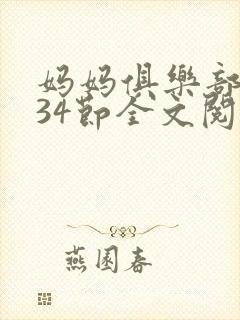 妈妈俱樂部
34節全文閱
燕園春